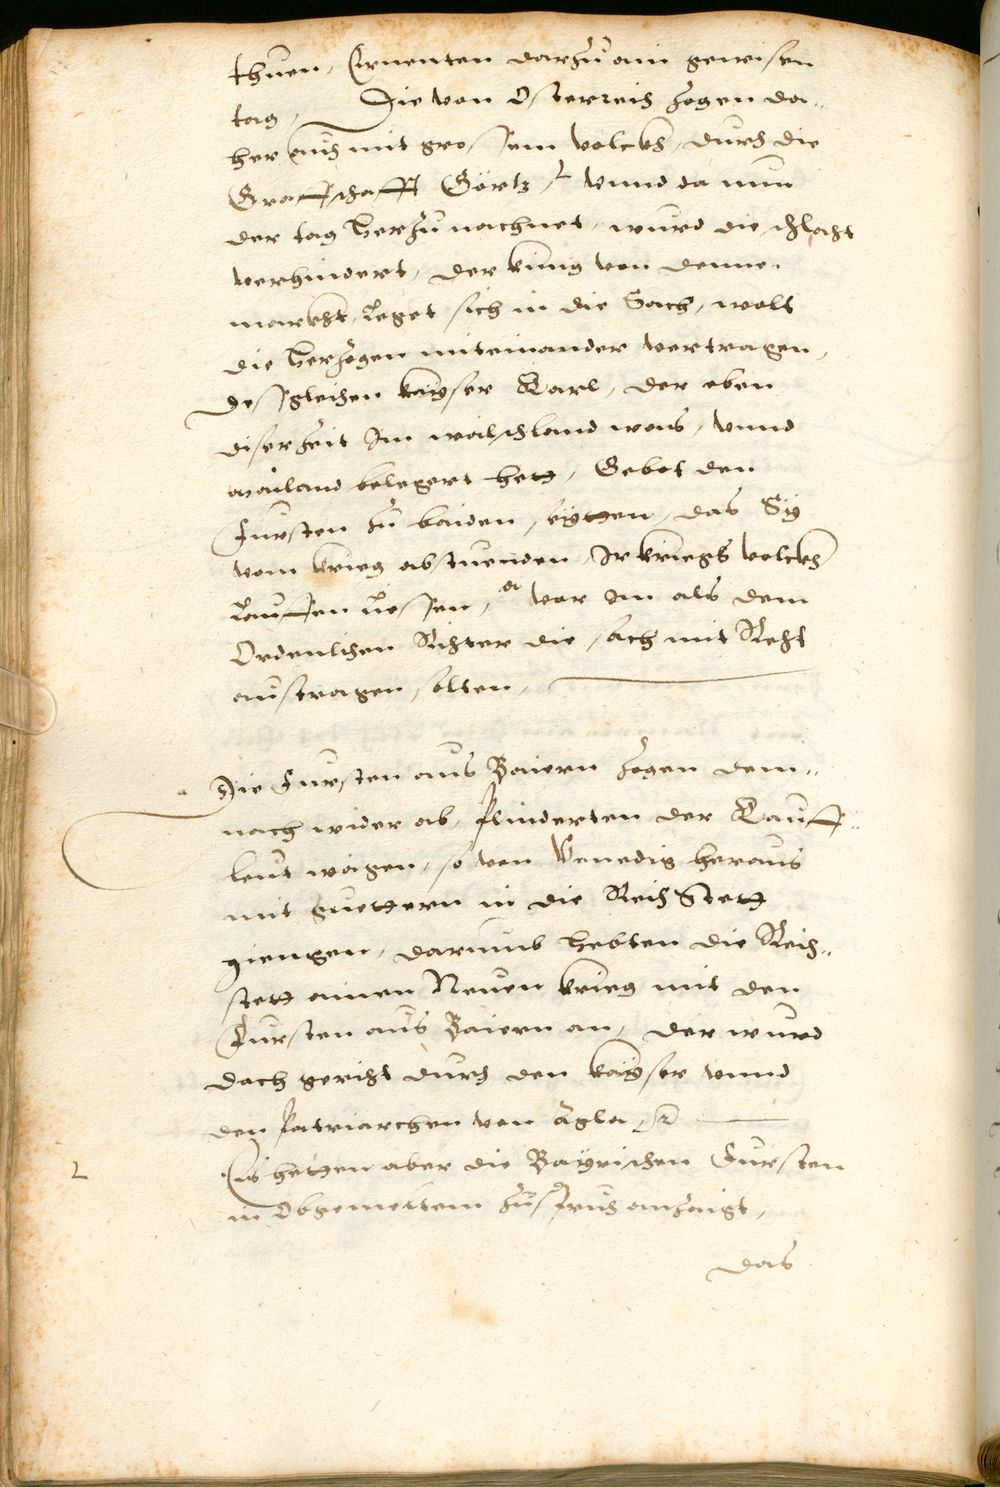 thuen, Ernenten darzu ain gewisen
tag, Die von Osterreich zogen da„
her auch mit grossem volckh, durch die
Graffschafft Görtz, L vnnd da nun
der tag herzu nachnet, wurd die schlacht
verhindert, der künig von Denne„
markht, leget sich in die Sach, wolt
die herzogen miteinander vertragen,
desgleichen kayser Karl, der eben
diser zeit Im wälschland was, vnnd
Mailand belegert hett, Gebot den
Fursten zu baiden seytten, das Sy
vom krieg abstuenden, Ir kriegs volckh
lauffen liessen, a vor Im als dem
Ordenlichen Richter die sach mit Recht
austragen solten,
a Die Fursten aus Baiern zogen dem„
nach wider ab, plinderten der Kauff„
leut wägen, so von Venedig heraus
mit guettern in die Reich Stett
giengen, darumb hebten die Reich„
stett ainen Neuen krieg mit den
Fursten aus Baiern an, der wurd
doch gericht durch den kayser vnnd
den patriarchen von Agla,
L Es hetten aber die Bayrischen Fursten
in Obgemeltem zuspruch anzaigt,
das